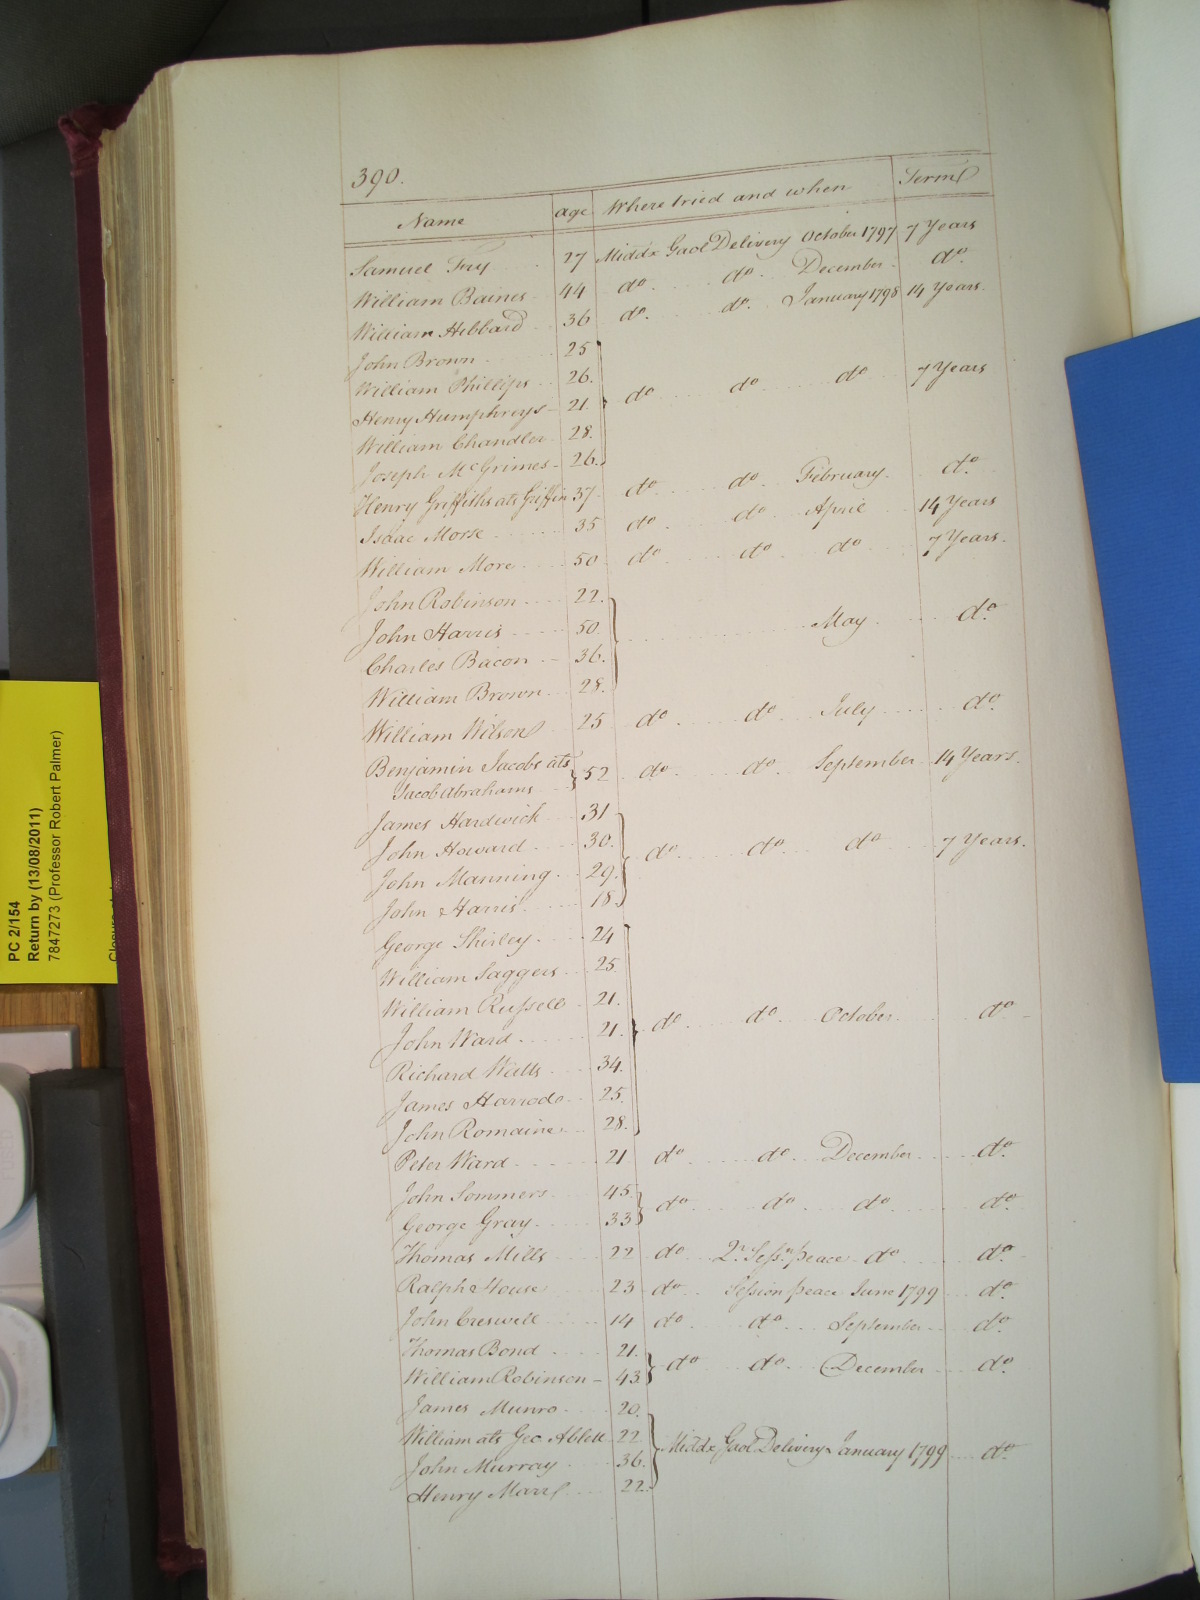 390.
Name age Where tried and when Term
Samuel Fry 27 Middx Gaol Delivery October 1797 7 Years
William Baines 44 do. do. December do.
William Hibbard 36 do. do. January 1798 14 Years
John Brown 25
William Phillips 26.
Henry Humphreys 21 do do do 7 Years
William Chandler 28.
Joseph McGrimes 26.
Henry Griffiths ats Griffin 37 do do February. do.
Isaac Morse 35 do do April 14 Years
William More 50 do do do 7 Years.
John Robinson 22.
John Harris 50. May do.
Charles Bacon 36.
William Brown 28.
William Wilson 25 do do July do.
Benjamin Jacobs ats
Jacob Abrahams 52 do. do. September 14 Years.
James Hardwick 31
John Howard 30. do. do do 7 Years.
John Manning 29.
John Harris 18.
George Shirley 24
William Saggers 25.
William Russell 21.
John Ward 21. do do. October do
Richard Watts 34.
James Harrod 25.
John Romaine 28.
Peter Ward 21 do do. December do.
John Sommers 45.
George Gray 33 do do do do.
Thomas Mills 22 do Qr. Sessn. peace do do.
Ralph House 23 do Session peace June 1799 do.
John Creswell 14 do do September do.
Thomas Bond 21.
William Robinson 43 do do. December do.
James Munro 20.
William ats Geo Ablett 22
John Murray 36. Middx Gaol Delivery January 1799 do.
Henry 22.
PC 2/154
Return by (13/08/2011)
7847273 (Professor Robert Palmer)